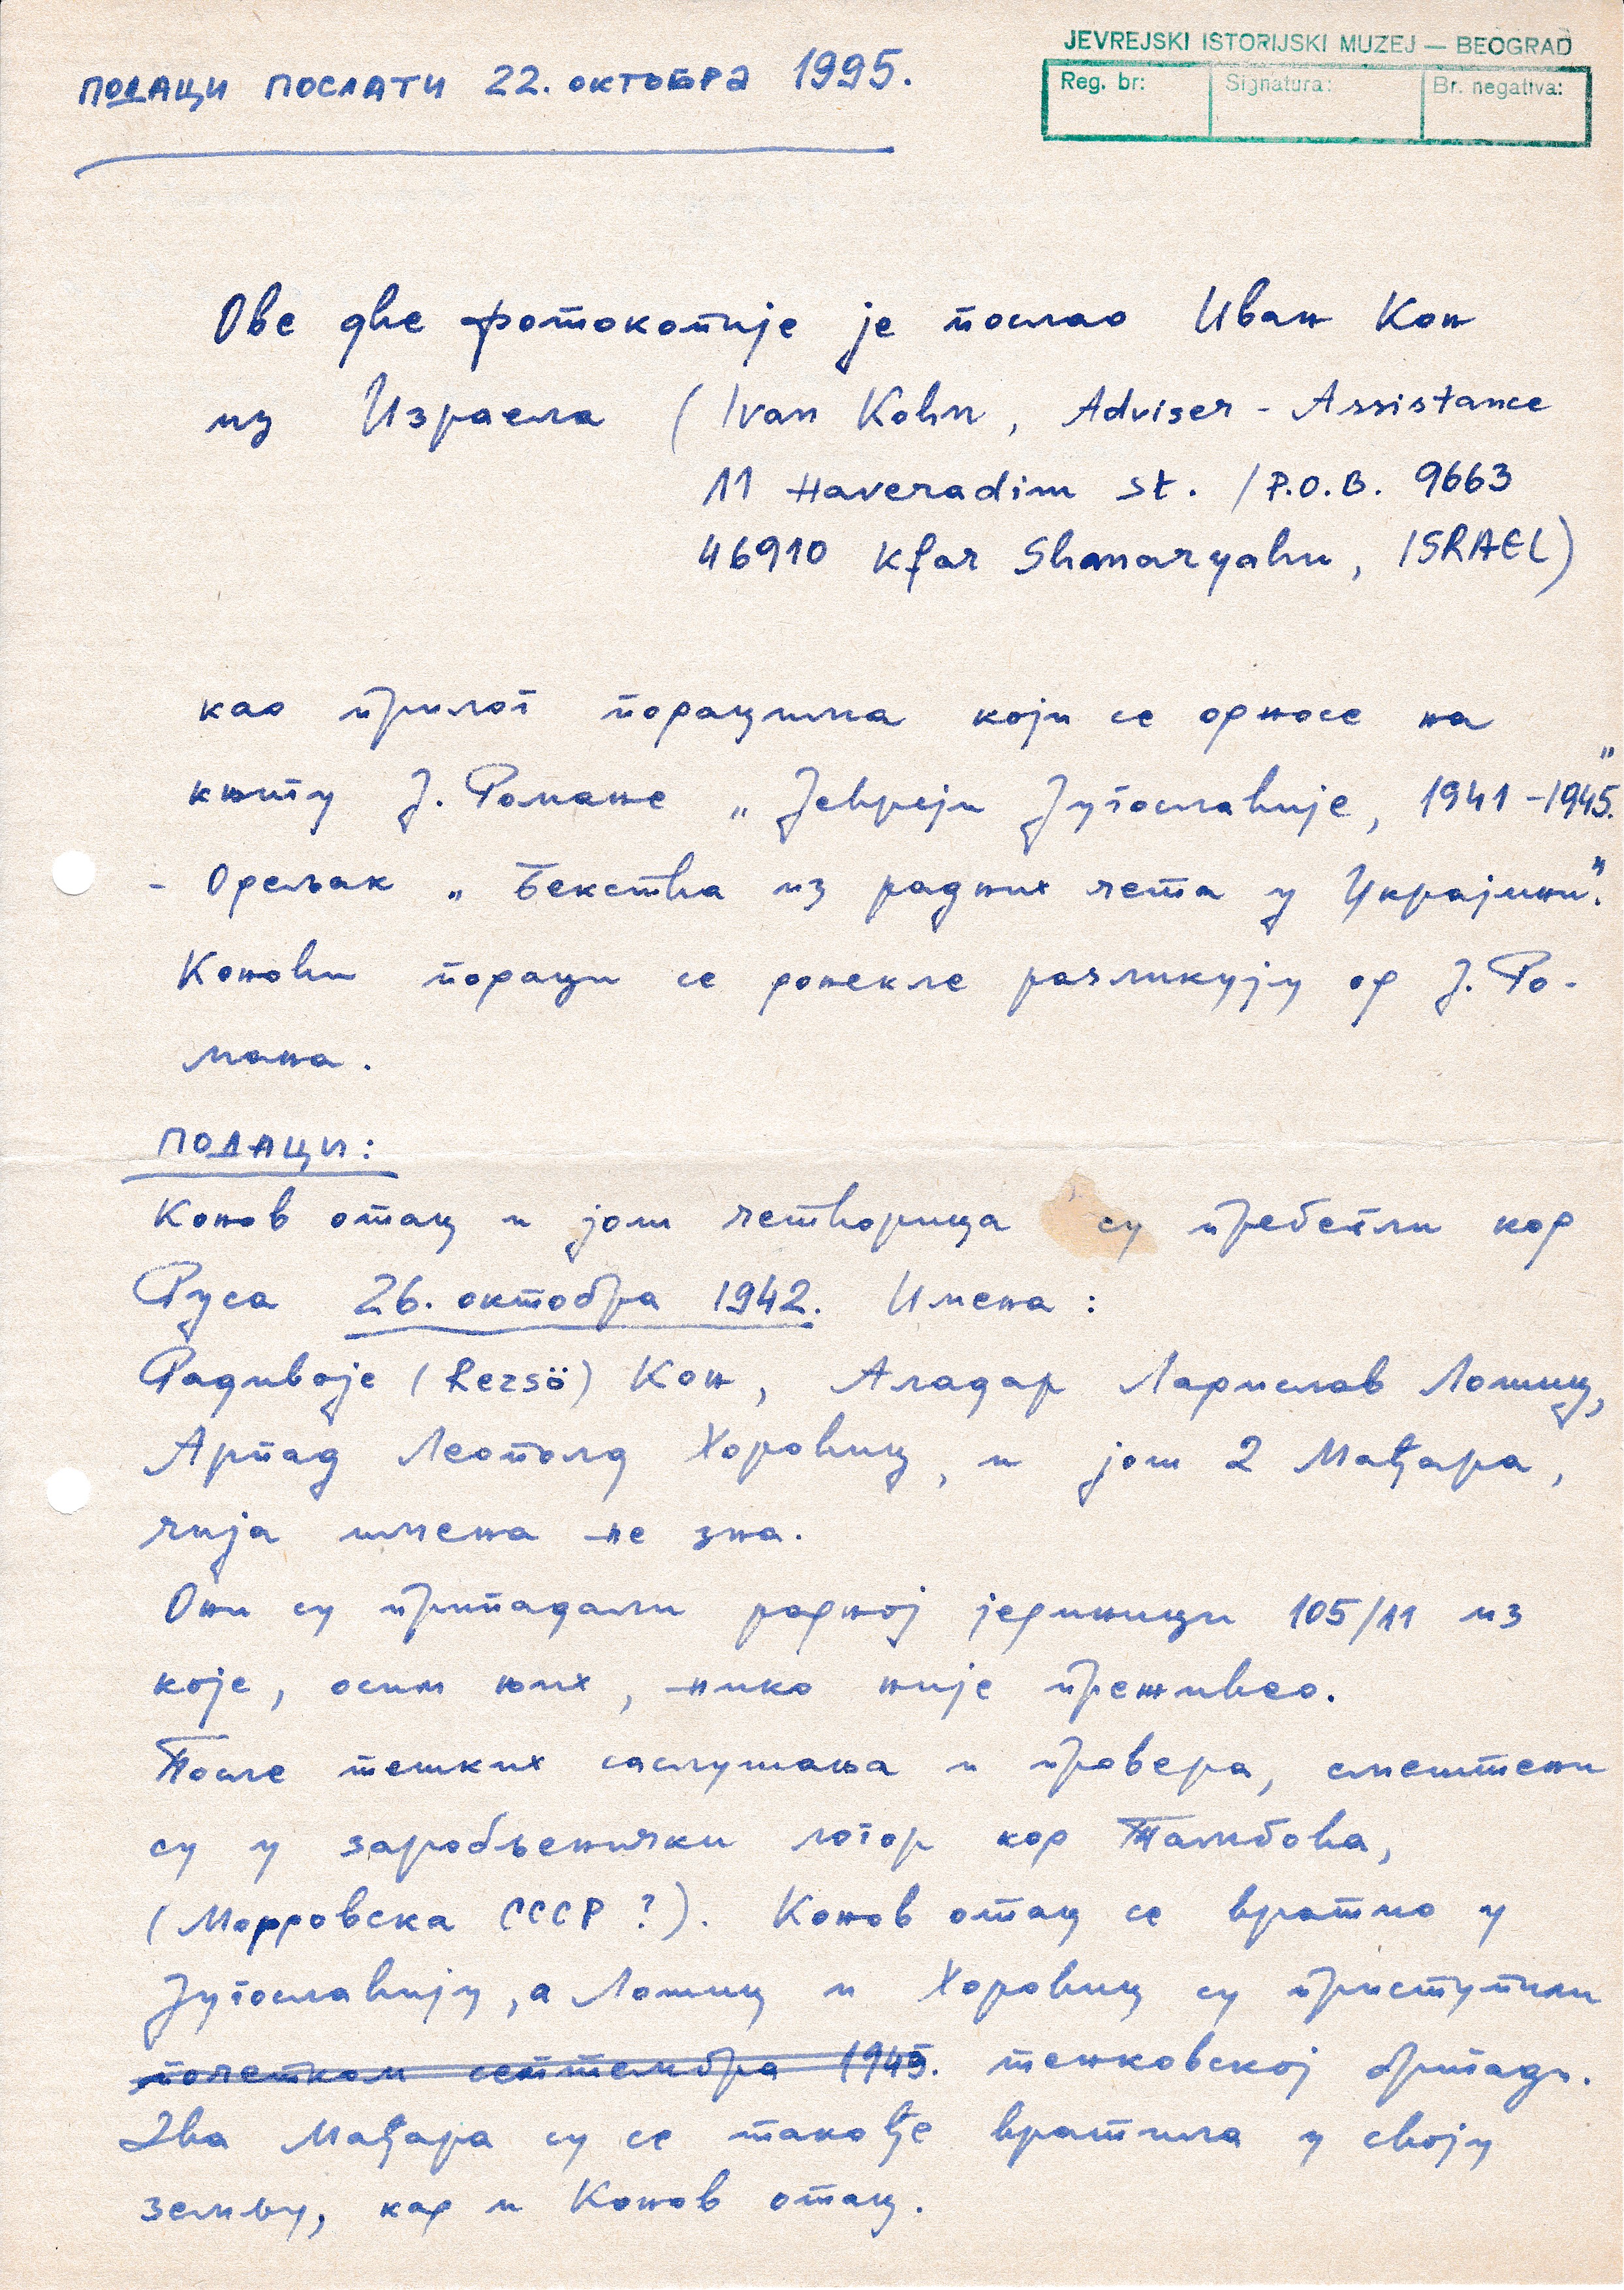 JEVREJSKI ISTORIJSKI MUZEJ — BEOGRAD
Reg. br: Signatura: Br. negativa:
ПОДАЦИ ПОСЛАТИ 22. ОКТОБРА 1995.
Ове две фотокопије је послао Иван Кон
из Израела (Ivan Kohn, Adviser - Assistance
11 Haveradim st. / P.O.B. 9663
46910 Kfar Shmaryahu, ISRAEL)
као прилог подацима који се односе на
књигу Ј. Романа „Јевреји Југославије, 1941-1945."
- Одељак „Бекства из радних чета у Украјини".
Конови подаци се донекле разликују од Ј. Ро-
мана.
ПОДАЦИ:
Конов отац и још четворица су пребегли код
Руса 26. октобра 1942. Имена:
Радивоје (Rezsö) Кон, Аладар Ладислав Лошиц,
Арпад Леополд Хоровиц, и још 2 Мађара,
чија имена не зна.
Они су припадали радној јединици 105/11 из
које, осим њих, нико није преживео.
После тешких саслушања и провера, смештени
су у заробљенички логор код Тамбова,
(Мордовска СССР?). Конов отац се вратио у
Југославију, а Лошиц и Хоровиц су приступили
почетком септембра 1943. тенковској бригади.
Два Мађара су се такође вратила у своју
земљу, кад и Конов отац.